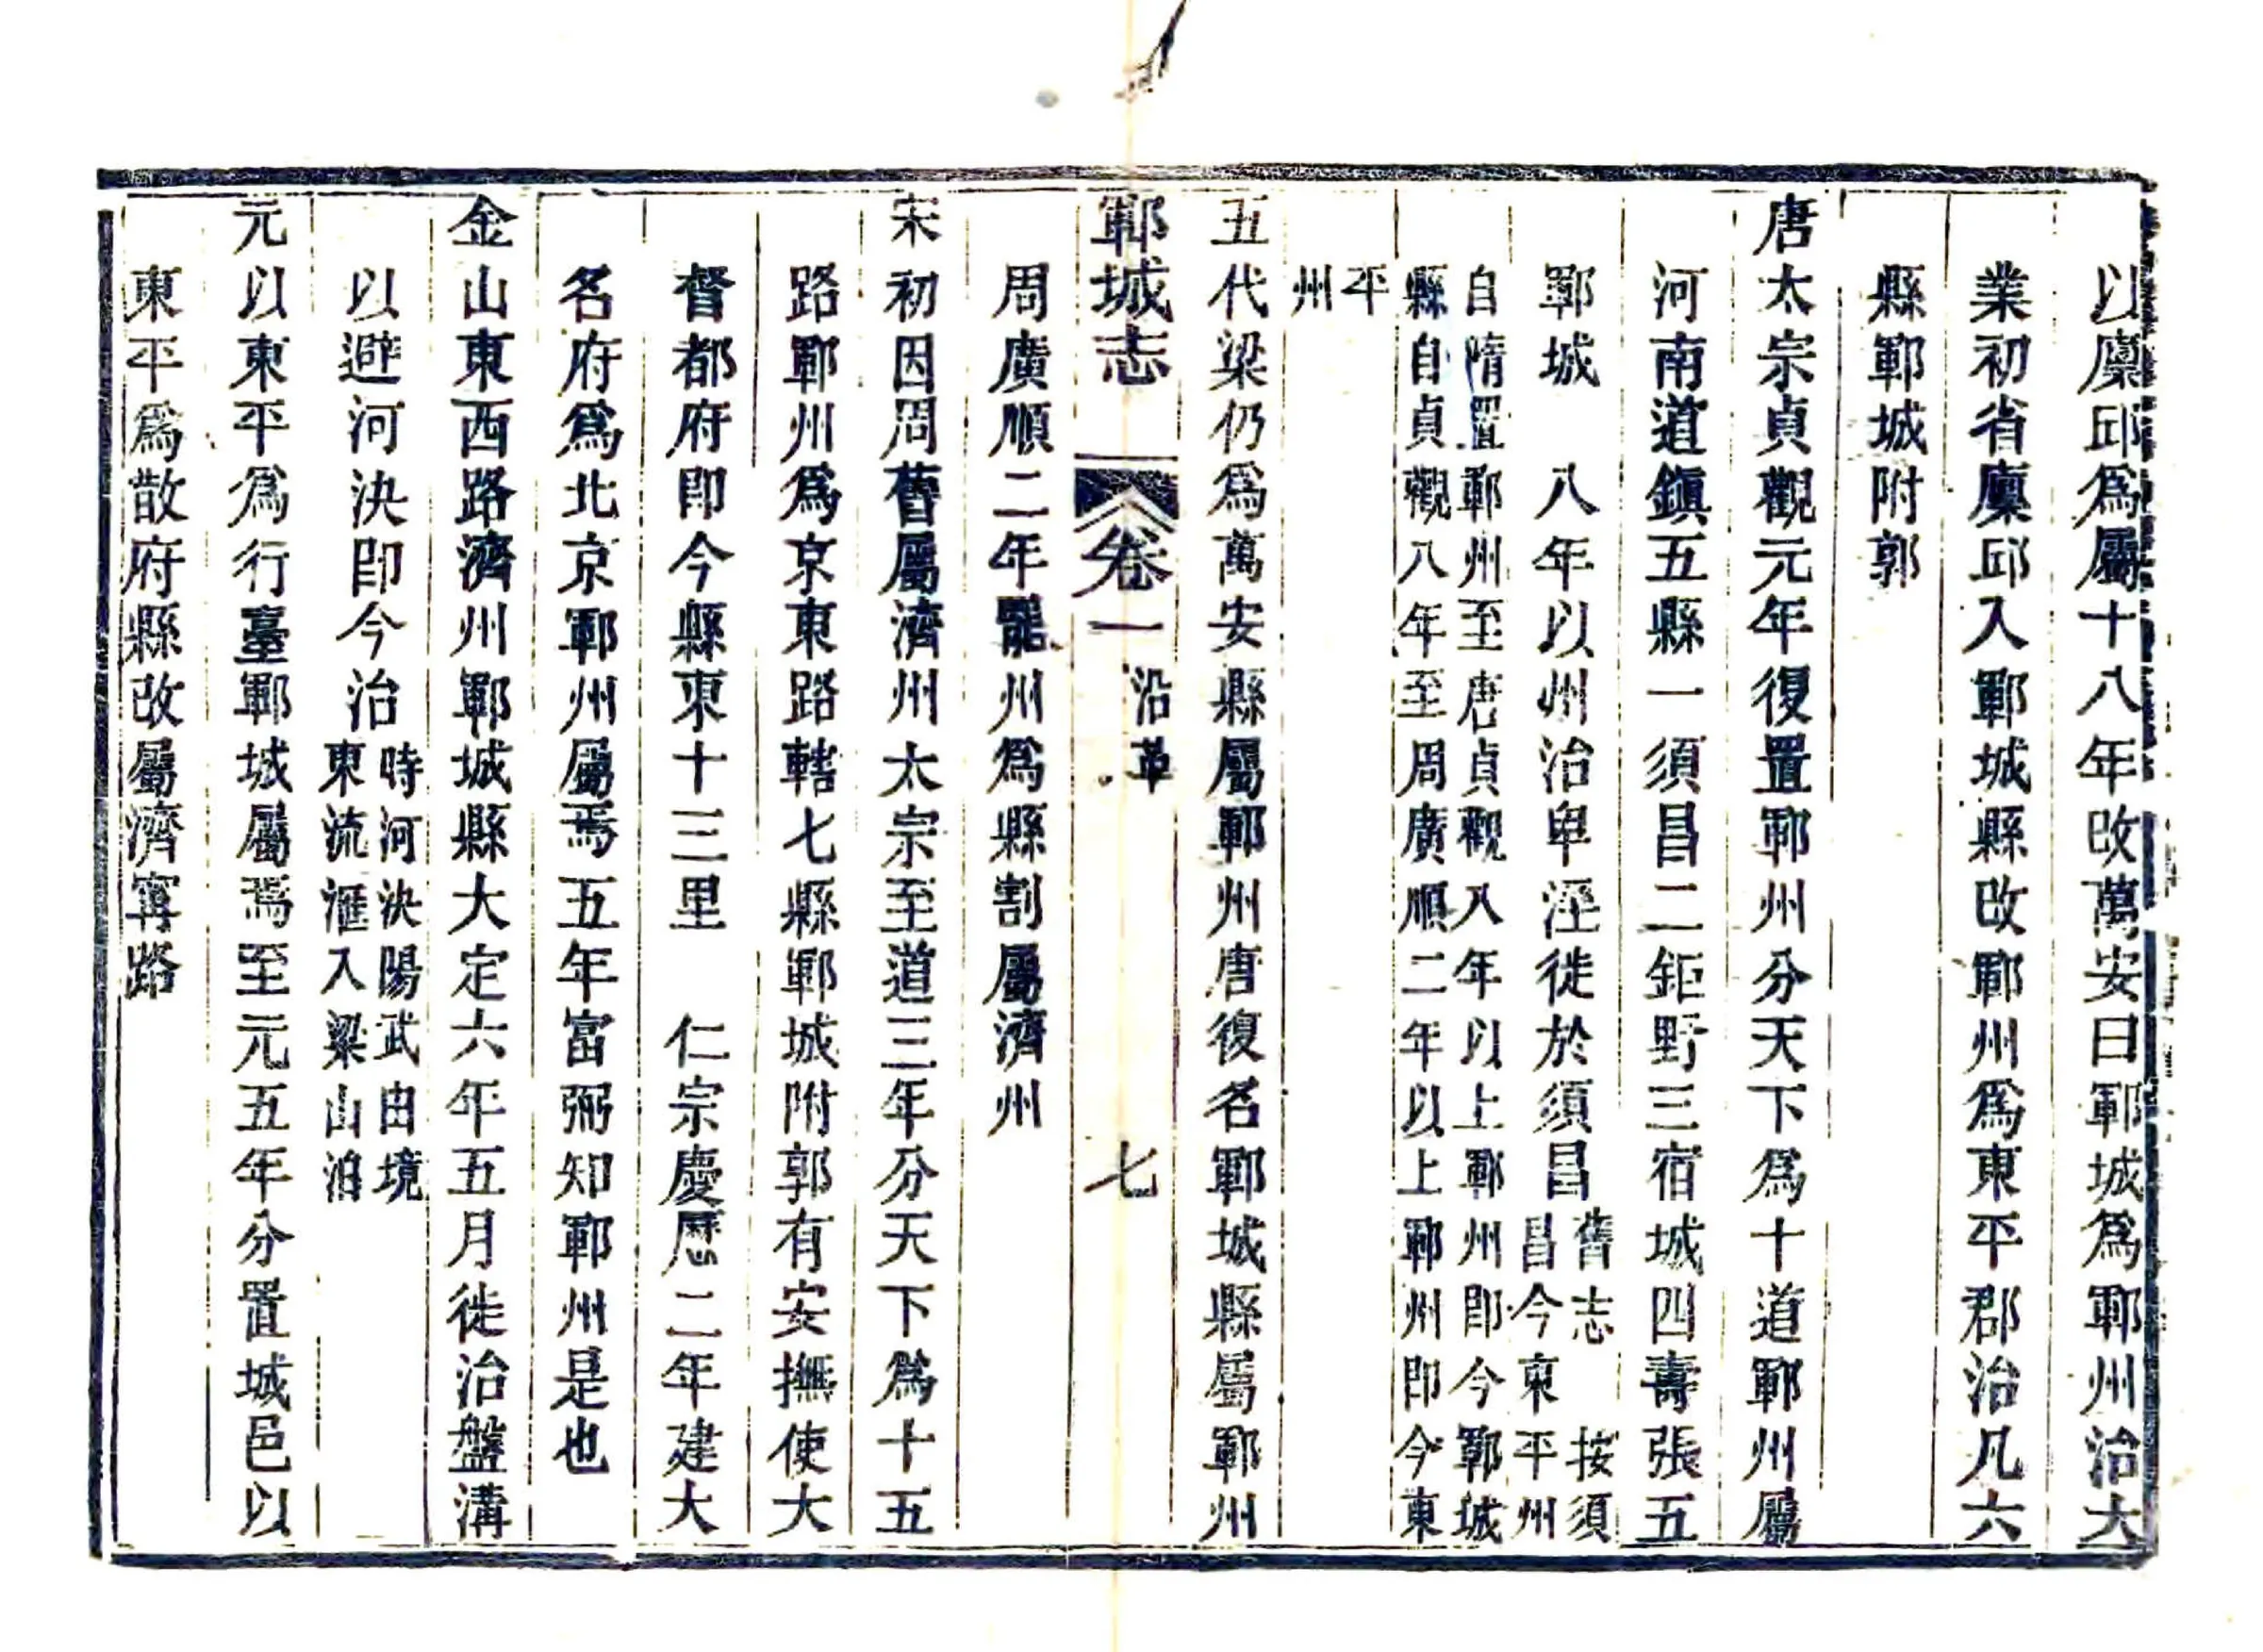 以廩邱爲屬十八年改萬安曰鄆城爲鄆州治大
業初省廩邱入鄆城縣改鄆州爲東平郡治凡六
縣鄆城附郭
唐太宗貞觀元年復置鄆州分天下爲十道鄆州屬
河南道鎮五縣一須昌二鉅野三宿城四壽張五
鄆城　八年以州治卑溼徙於須昌舊志　按須
昌今東平州
自隋置鄆州至唐貞觀八年以上鄆州即今鄆城
縣自貞觀八年至周廣順二年以上鄆州即今東
平
州
五代梁仍爲萬安縣屬鄆州唐復名鄆城縣屬鄆州
鄆城志　卷一　沿革　七
周廣順二年罷州爲縣割屬濟州
宋初因周舊屬濟州太宗至道三年分天下爲十五
路鄆州爲京東路轄七縣鄆城附郭有安撫使大
督都府即今縣東十三里　仁宗慶歷二年建大
名府爲北京鄆州屬焉五年富弼知鄆州是也
金山東西路濟州鄆城縣大定六年五月徙治盤溝
以避河決即今治時河決陽武由境
東流滙入梁山泊
元以東平爲行臺鄆城屬焉至元五年分置城邑以
東平爲散府縣改屬濟寗路